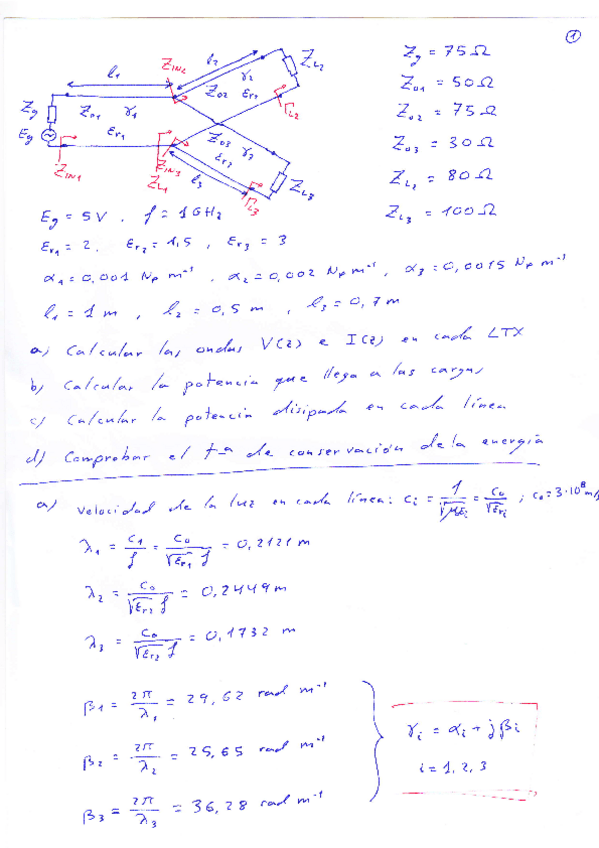 1
l1
l2
γ2
ZL2
ZIN2
Z02
Er2
ΓL2
Zg
Z01
γ1
Er1
Eg
Z03
γ3
ZIN1
ZIN3
ZL1
l3
ΓL3
ZL3
Zg = 75 Ω
Z01 = 50 Ω
Z02 = 75 Ω
Z03 = 30 Ω
ZL2 = 80 Ω
ZL3 = 100 Ω
Eg = 5V . f = 1 GHz
Er1 = 2 . Er2 = 1,5 , Er3 = 3
α1 = 0,001 Np m⁻¹ , α2 = 0,002 Np m⁻¹ , α3 = 0,0015 Np m⁻¹
l1 = 1 m , l2 = 0,5 m , l3 = 0,7 m
a) Calcular las ondas V(z) e I(z) en cada LTX
b) Calcular la potencia que llega a las cargas
c) Calcular la potencia disipada en cada línea
d) Comprobar el tma de conservación de la energía
a) Velocidad de la luz en cada línea: ci = 1/√μεi = c0/√εri ; c0 = 3·10⁸ m/s
λ1 = c1/f = c0/(√εr1 f) = 0,2121 m
λ2 = c0/(√εr2 f) = 0,2449 m
λ3 = c0/(√εr3 f) = 0,1732 m
β1 = 2π/λ1 = 29,62 rad m⁻¹
β2 = 2π/λ2 = 25,65 rad m⁻¹
β3 = 2π/λ3 = 36,28 rad m⁻¹
γi = αi + jβi
i = 1, 2, 3